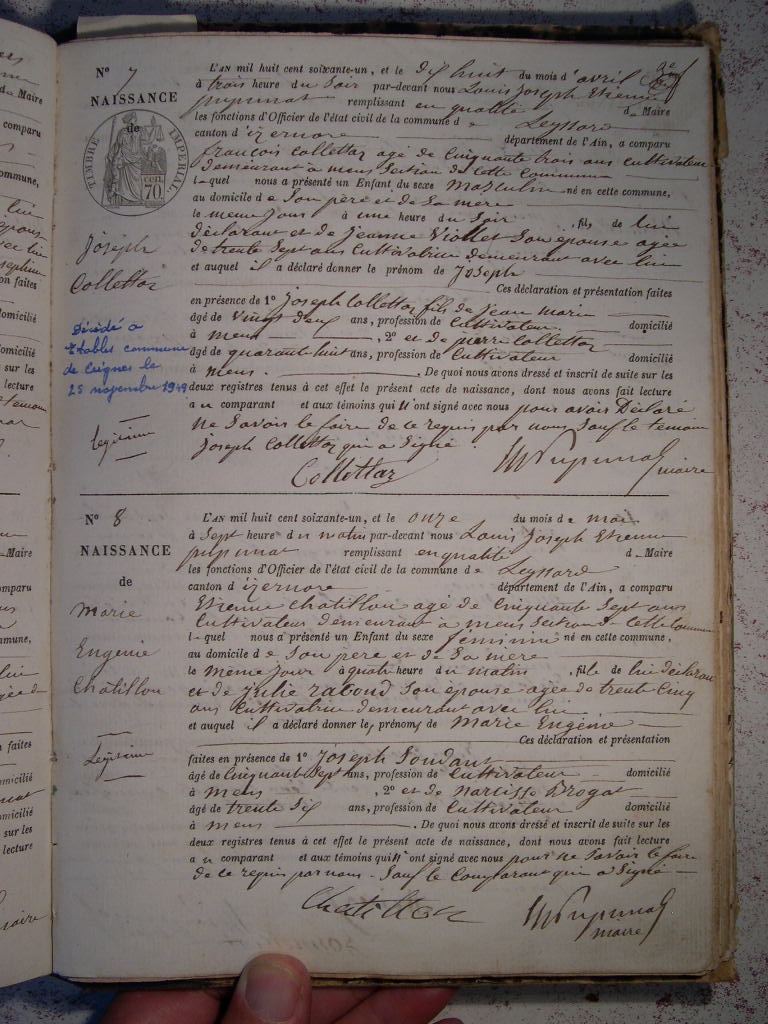 N° 7
NAISSANCE
de
TIMBRE IMPÉRIAL
70 cen
Joseph
Collettaz
Décédé à
Etables commune
de Ceignes le
25 novembre 19
légitime
L'AN mil huit cent soixante-un, et le dix huit du mois d'avril
à trois heure du Soir par-devant nous Louis Joseph Etienne
pupunat remplissant en qualité d Maire
les fonctions d'Officier de l'état civil de la commune d e Leyssard
canton d'izernore département de l'Ain, a comparu
françois Collettaz agé de Cinquante trois ans cultivateur
demeurant à mens Section de cette Commune
lequel nous a présenté un Enfant du sexe masculin né en cette commune,
au domicile de Son père et de Sa mère
le meme jour à une heure du Soir , fils de lui
déclarant et de jeanne Viollet Son épouse agée
de trente Sept ans Cultivatrice demeurant avec lui
et auquel il a déclaré donner le prénom de Joseph
Ces déclaration et présentation faites
en présence de 1° Joseph Collettaz fils de jean marie
âgé de Vingt deux ans, profession de Cultivateur domicilié
à mens , 2° et de pierre Collettaz
âgé de quarante huit ans, profession de Cultivateur domicilié
à mens . De quoi nous avons dressé et inscrit de suite sur les
deux registres tenus à cet effet le présent acte de naissance, dont nous avons fait lecture
au comparant et aux témoins qui n'ont signé avec nous pour avoir Déclaré
ne Savoir le faire de ce requis par nous Sauf le temoin
joseph Collettaz qui a Signé.
Collettaz
Pupunat
maire
N° 8
NAISSANCE
de
Marie
Eugénie
Chatillon
Légitime
L'AN mil huit cent soixante-un, et le onze du mois de mai
à Sept heure du matin par-devant nous Louis Joseph Etienne
pupunat remplissant en qualité d Maire
les fonctions d'Officier de l'état civil de la commune de Leyssard
canton d'izernore département de l'Ain, a comparu
Etienne Chatillon agé de Cinquante Sept ans
Cultivateur demeurant à mens Section de cette Commune
lequel nous a présenté un Enfant du sexe féminin né en cette commune,
au domicile de Son père et de Sa mère
le même jour à quatre heure du matin , fille de lui déclarant
et de Julie raboud Son épouse agée de trente Cinq
ans Cultivatrice demeurant avec lui
et auquel il a déclaré donner les prénoms de Marie Eugénie
Ces déclaration et présentation
faites en présence de 1° Joseph
âgé de Cinquante Sept ans, profession de Cultivateur domicilié
à mens , 2° et de narcisse Brogat
âgé de trente Six ans, profession de Cultivateur domicilié
à mens . De quoi nous avons dressé et inscrit de suite sur les
deux registres tenus à cet effet le présent acte de naissance, dont nous avons fait lecture
au comparant et aux témoins qui n'ont signé avec nous pour ne Savoir le faire
de ce requis par nous. Sauf le Comparant qui a Signé
Chatillon
Pupunat
maire